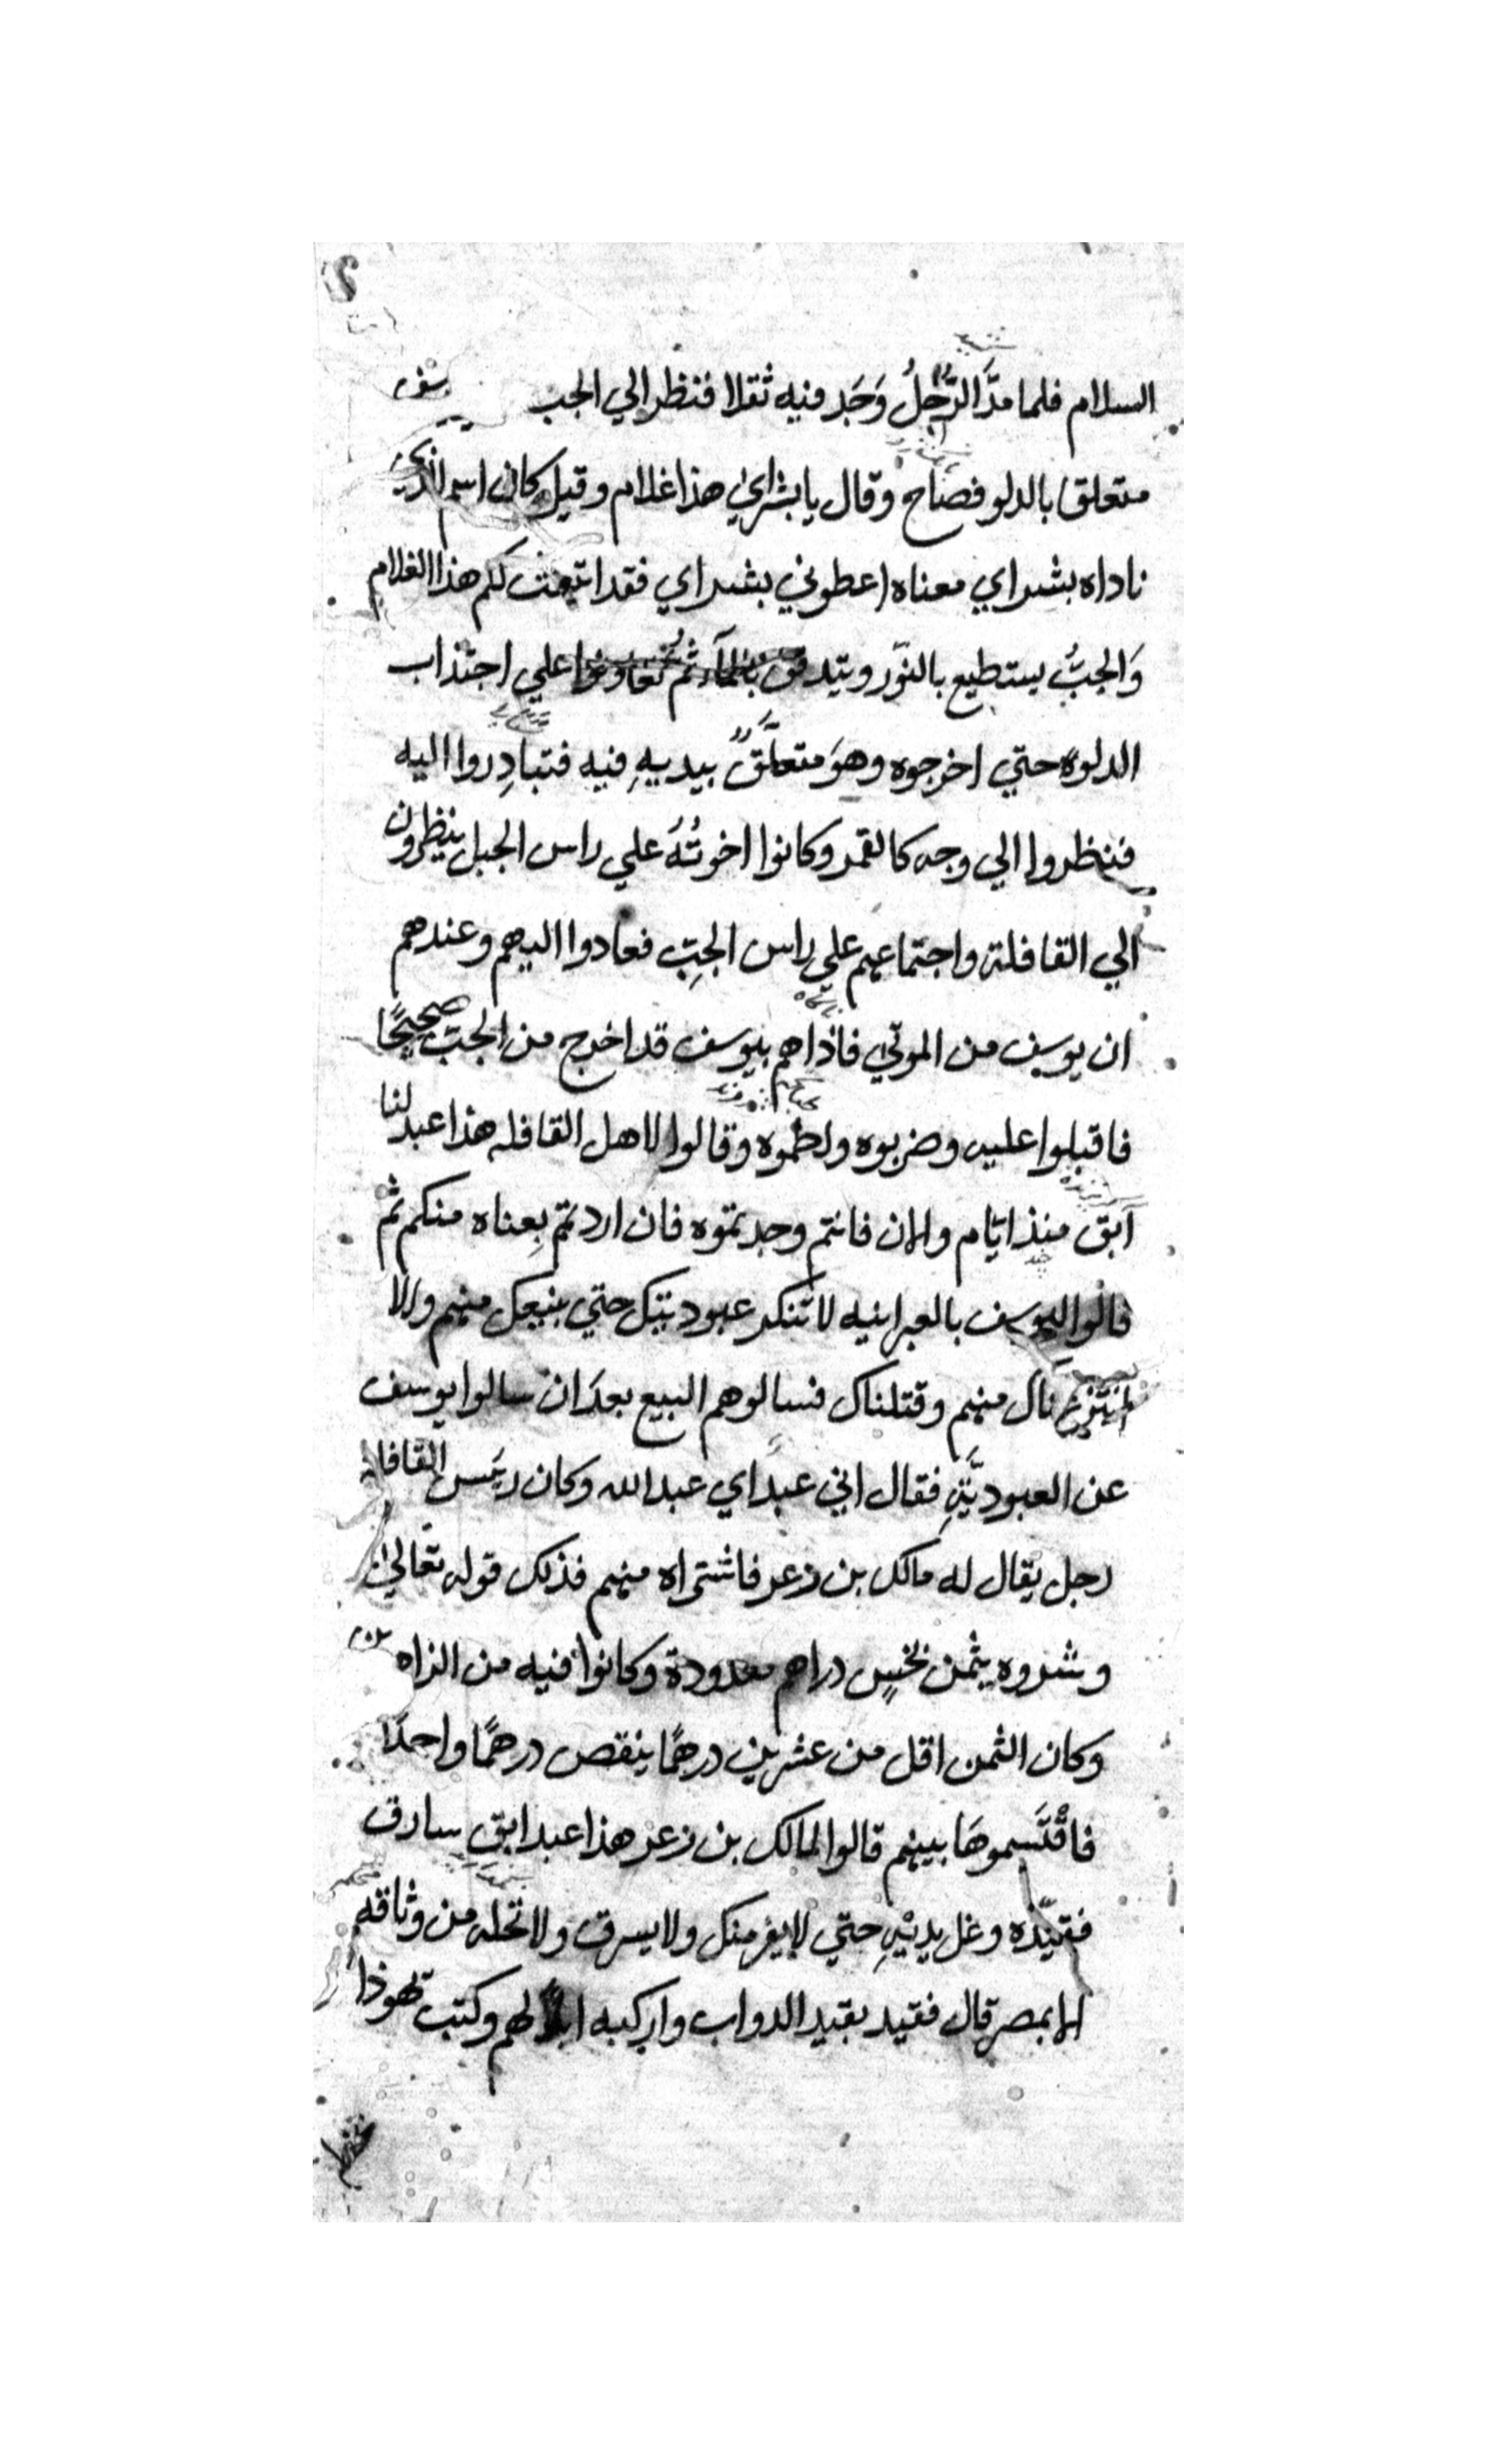 السلام فلما مدَّ الرَّجُلُ وَجَد فيه ثقلا فنظر الي الجب
متعلق بالدلو فصاح وقال يا بشراي هذا غلام وقيل كان اسم الذي
ناداه بشراي معناه اعطوني بشراي فقد اتيت لكم هذا الغلام
وَالجبُّ يستطيع بالنّور ويتدفق بالمآء ثم تعاونوا علي اجتذاب
الدلوه حتي اخرجوه وهوَ متعلَّقٌ بيديهِ فيه فتبادِروا اليه
فنظروا الي وجه كالقمر وكانوا اخوتُهُ علي راس الجبل ينظرون
الي القافلة واجتماعهم علي راس الجبِّ فعادوا اليهم وعندهم
ان يوسف من الموتي فاذاهم بيوسف قد اخرج من الجبّ صحيحًا
فاقبلوا عليه وضربوه ولطموه وقالوا لاهل القافله هذا عبد لنا
آبق منذ ايّام والان فانتم وجدتموه فان اردتم بِعناه منكم ثم
قالوا ليوسف بالعبرانيه لا تنكر عبوديتك حتي بنيعك منهم والا
ناك منهم وقتلناك فسالوهم البيع بعدَ ان سالوا يوسف
عن العبوديَّةِ فقال اني عبد اي عبد الله وكان رئيس القافله
رجل يقال له مالك بن زعر فاشتراه منهم فذلك قوله تعالي
وشروه بثمن بخسٍ دراهم معدودة وكانوا فيه من الزاه
وكان الثمن اقل من عشرين درهمًا ينقص درهمًا واحدًا
فاقْتَسموهَا بينهم قالوا لمالك بن زعر هذا عبد ابق سارق
فقيّده وغل يديْهِ حتي لا يفر منك ولا يسرق ولا تحله من وثاقه
الا بمصر قال فقيد بقيد الدواب واركبه لهم وكتب يهوذا